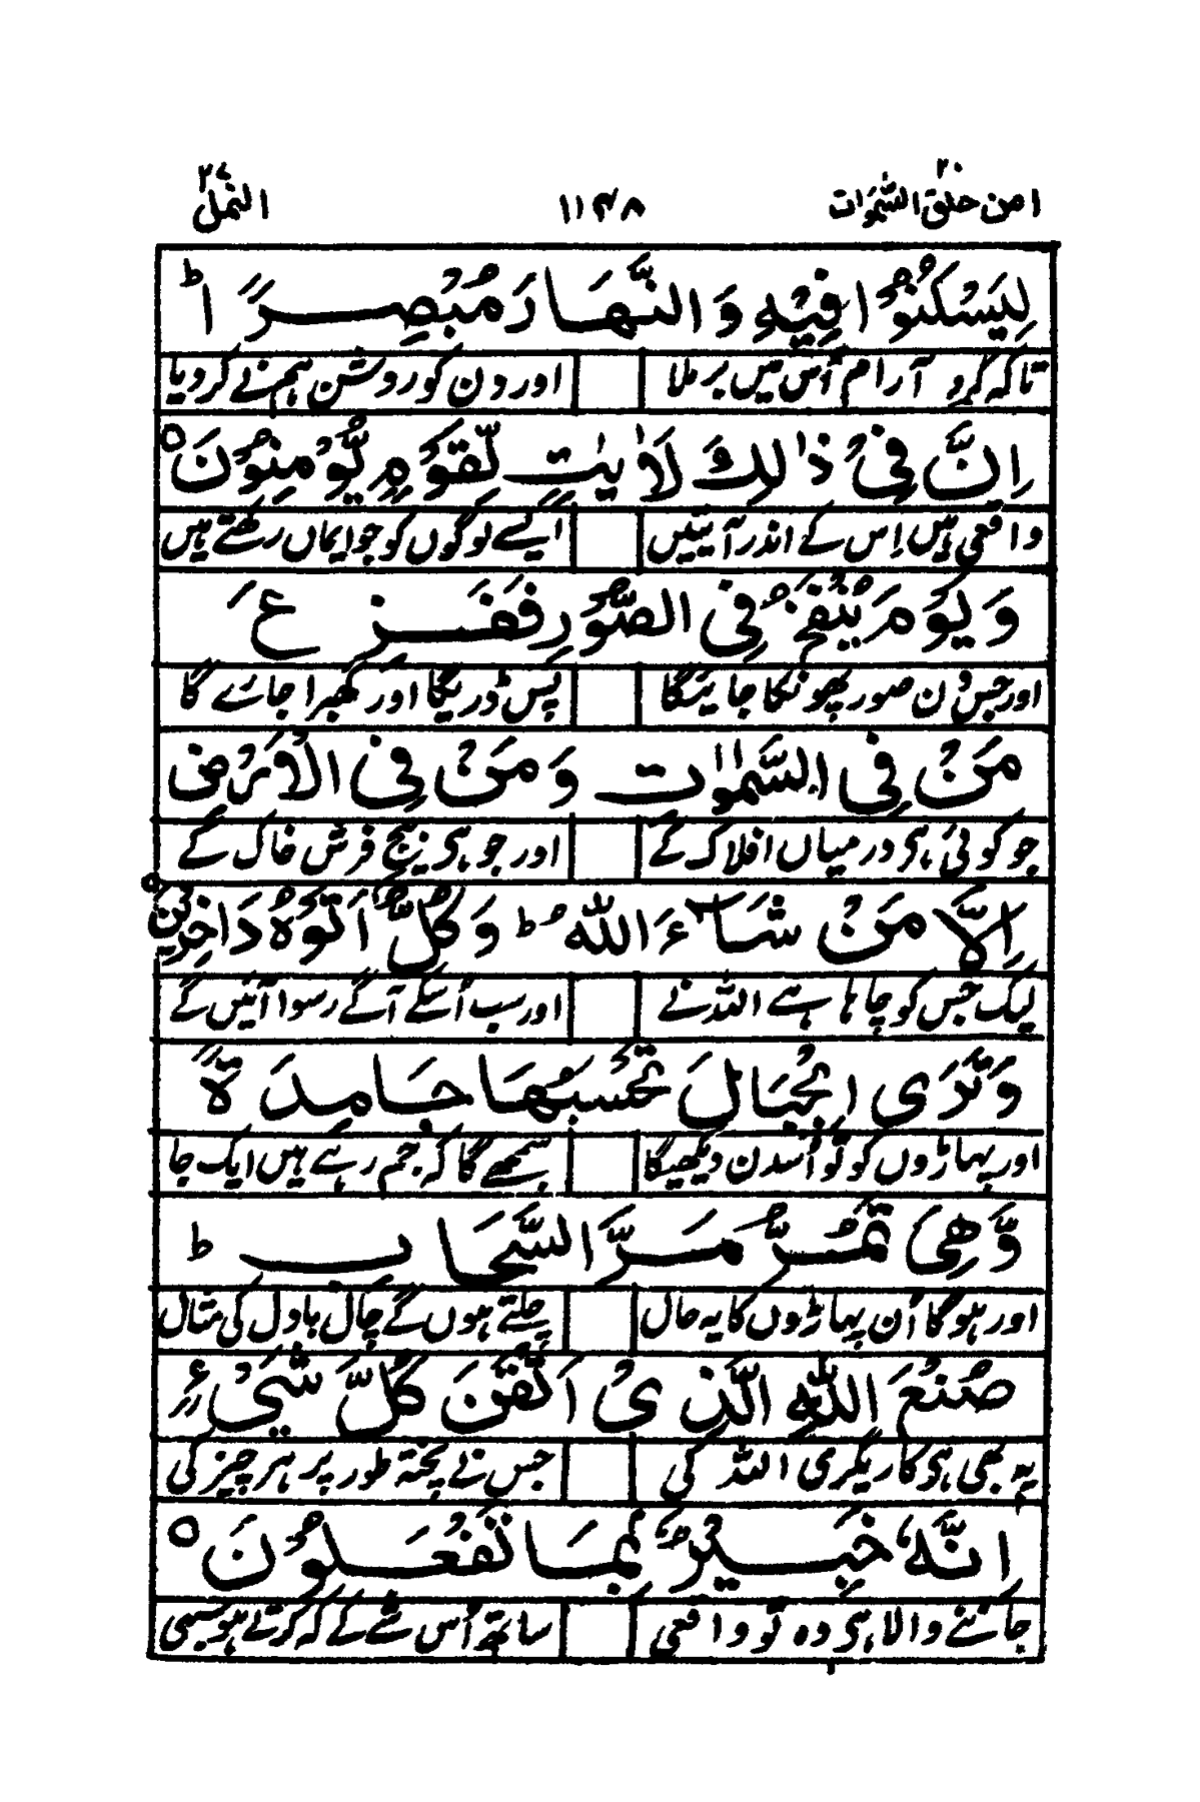 امن خلق السّمٰوٰت ۲۰ ۱۱۴۸ النمل ۲۷
لِیَسۡکُنُوۡا فِیۡهِ وَالنَّهَارَ مُبۡصِرًا ؕ
تاکہ کرو آرام اُس میں برملا اور دن کو روشن ہم نے کر دیا
اِنَّ فِیۡ ذٰلِكَ لَاٰیٰتٍ لِّقَوۡمٍ یُّؤۡمِنُوۡنَ ○
واقعی ہیں اِس کے اندر آیتیں ایسے لوگوں کو جو ایماں رکھتے ہیں
وَیَوۡمَ یُنۡفَخُ فِی الصُّوۡرِ فَفَزِعَ
اور جس دن صور پھونکا جائیگا پس ڈریگا اور گھبرا جائے گا
مَنۡ فِی السَّمٰوٰتِ وَمَنۡ فِی الۡاَرۡضِ
جو کوئی ہی درمیاں افلاک کے اور جو ہی نیچے فرش خاک کے
اِلَّا مَنۡ شَآءَ اللّٰهُ ؕ وَکُلٌّ اَتَوۡهُ دَاخِرِیۡنَ ○
لیک جس کو چاہا ہے اللہ نے اور سب اُسکے آگے رسوا آئیں گے
وَتَرَی الۡجِبَالَ تَحۡسَبُهَا جَامِدَةً
اور پہاڑوں کو تو اُسدن دیکھیگا سمجھے گا کہ جم رہے ہیں ایک جا
وَّهِیَ تَمُرُّ مَرَّ السَّحَابِ ؕ
اور ہوگا اُن پہاڑوں کا یہ حال چلتے ہوں گے چال بادل کی مثال
صُنۡعَ اللّٰهِ الَّذِیۡ اَتۡقَنَ کُلَّ شَیۡءٍ
یہ بھی ہی کاریگری اللہ کی جس نے پختہ طور پر ہر چیز کی
اِنَّهٗ خَبِیۡرٌۢ بِمَا تَفۡعَلُوۡنَ ○
جاننے والا ہی وہ تو واقعی ساتھ اُس شے کے کہ کرتے ہو سبھی